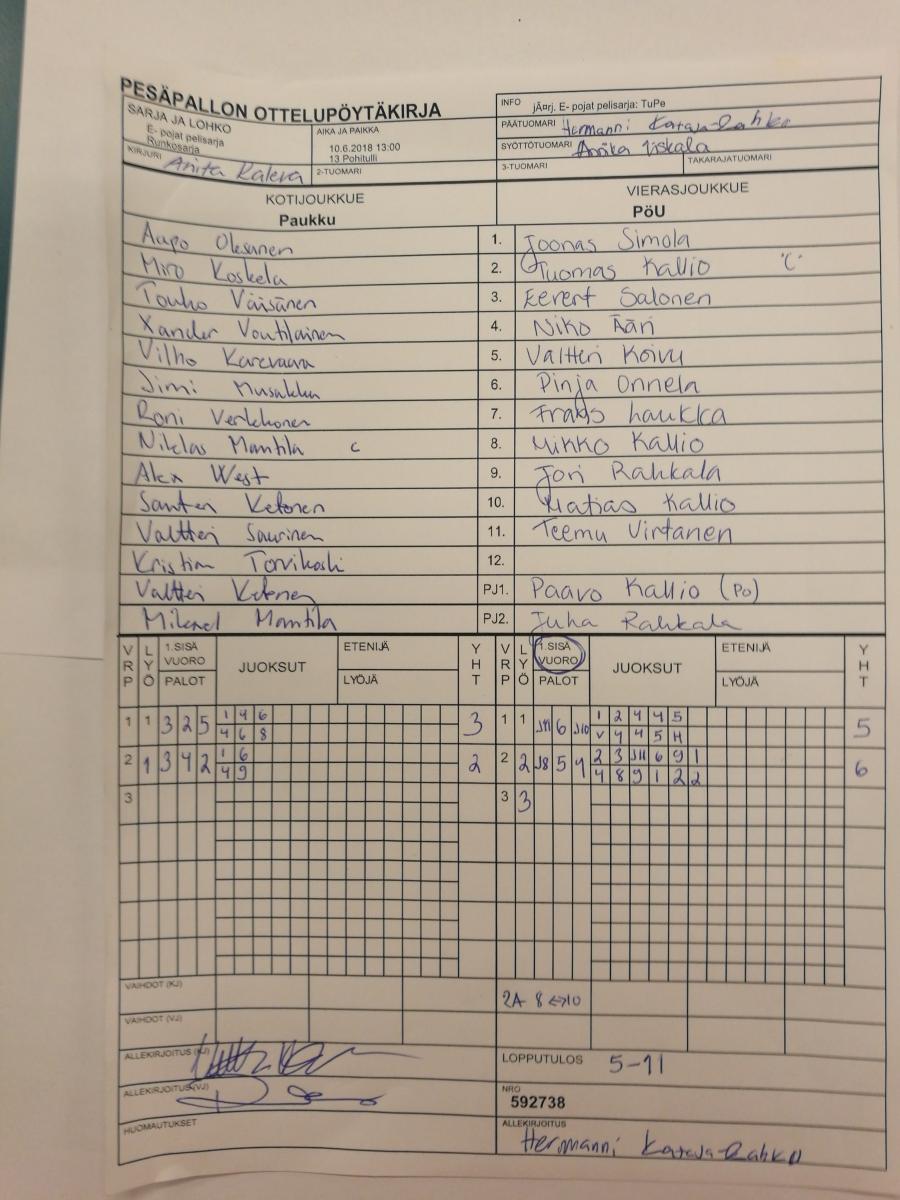 PESÄPALLON OTTELUPÖYTÄKIRJA
SARJA JA LOHKO
E- pojat pelisarja
Runkosarja
AIKA JA PAIKKA
10.6.2018 13:00
13 Pohitulli
KIRJURI Anita Raleva
2-TUOMARI
INFO jÃ¤rj. E- pojat pelisarja: TuPe
PÄÄTUOMARI Hermanni Karava-Rahko
SYÖTTÖTUOMARI Annika Iiskala
3-TUOMARI TAKARAJATUOMARI
KOTIJOUKKUE VIERASJOUKKUE
Paukku PöU
Aapo Oksanen 1. Joonas Simola
Miro Koskela 2. Tuomas Kallio "C"
Touko Väisänen 3. Eerert Salonen
Xander Voutilainen 4. Niko Ääri
Vilho Karevaara 5. Valtteri Koivu
Jimi Musakka 6. Pinja Onnela
Roni Verkkonen 7. Frans haukka
Niklas Mantila c 8. Mikko Kallio
Alex West 9. Jori Rahkala
Santeri Ketonen 10. Matias Kallio
Valtteri Saurinen 11. Teemu Virtanen
Kristian Torvikoski 12.
Valtteri Ketonen PJ1. Paavo Kallio (Po)
Mikael Mantila PJ2. Juha Rahkala
VRP LYÖ 1.SISÄ VUORO PALOT JUOKSUT ETENIJÄ LYÖJÄ YHT VRP LYÖ 1.SISÄ VUORO PALOT JUOKSUT ETENIJÄ LYÖJÄ YHT
1 1 3 2 5 1 4 6 3 1 1 J11 6 J10 1 2 4 4 5 5
4 6 8 V 4 4 5 H
2 1 3 4 2 1 6 2 2 2 J8 5 4 2 3 J11 6 9 1 6
4 9 4 8 9 1 2 2
3 3 3
VAIHDOT (KJ) 2A 8 <->10
VAIHDOT (VJ)
ALLEKIRJOITUS (KJ) LOPPUTULOS 5-11
ALLEKIRJOITUS(VJ) NRO
592738
HUOMAUTUKSET ALLEKIRJOITUS
Hermanni Karava-Rahko